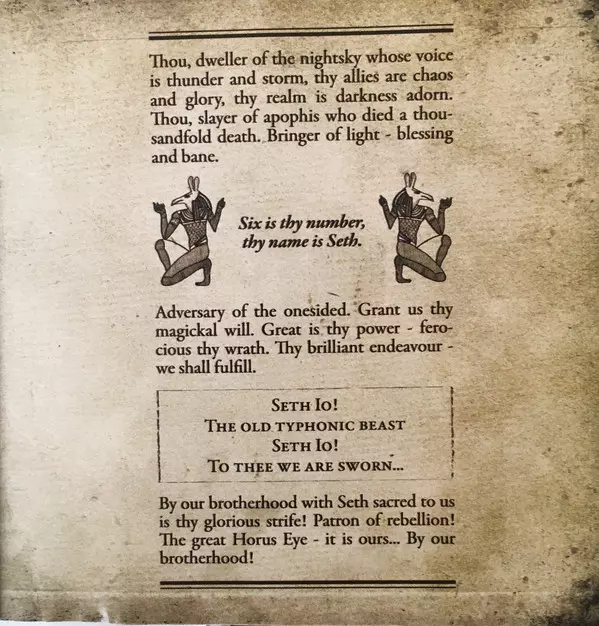 Thou, dweller of the nightsky whose voice
is thunder and storm, thy allies are chaos
and glory, thy realm is darkness adorn.
Thou, slayer of apophis who died a thou-
sandfold death. Bringer of light - blessing
and bane.
Six is thy number,
thy name is Seth.
Adversary of the onesided. Grant us thy
magickal will. Great is thy power - fero-
cious thy wrath. Thy brilliant endeavour -
we shall fulfill.
Seth Io!
The old typhonic beast
Seth Io!
To thee we are sworn...
By our brotherhood with Seth sacred to us
is thy glorious strife! Patron of rebellion!
The great Horus Eye - it is ours... By our
brotherhood!